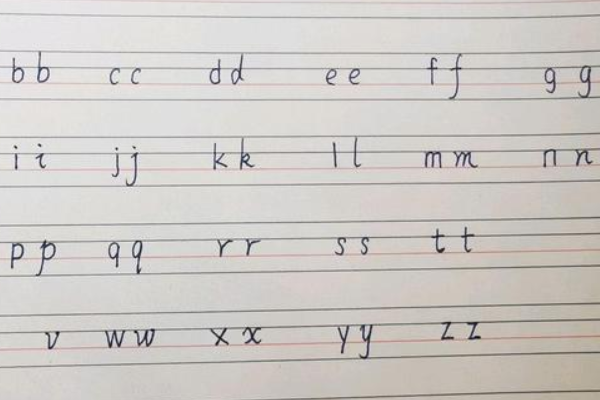 bb cc dd ee ff gg
ii jj kk ll mm nn
pp qq rr ss tt
v ww xx yy zz